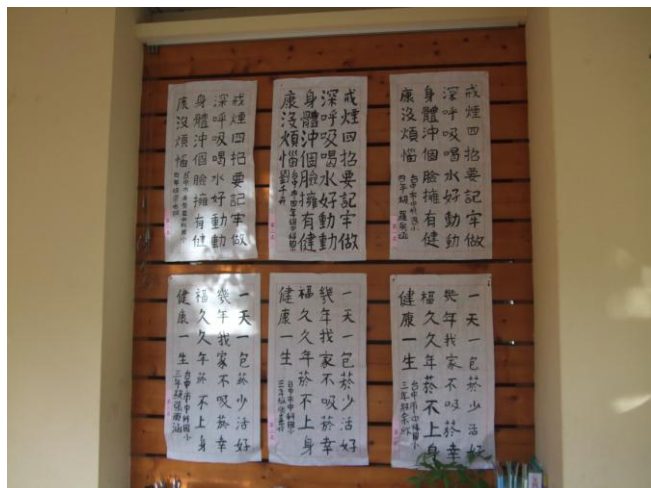 戒煙四招要記牢做
深呼吸喝水好動動
身體沖個臉擁有健
康沒煩惱
四年級
戒煙四招要記牢做
深呼吸喝水好動動
身體沖個臉擁有健
康沒煩惱
戒煙四招要記牢做
深呼吸喝水好動動
身體沖個臉擁有健
康沒煩惱
一天一包菸少活好
幾年我家不吸菸幸
福久久年菸不上身
健康一生
台中市中科國小
三年級
一天一包菸少活好
幾年我家不吸菸幸
福久久年菸不上身
健康一生
台中市中科國小
三年級
一天一包菸少活好
幾年我家不吸菸幸
福久久年菸不上身
健康一生
台中市中科國小
三年級